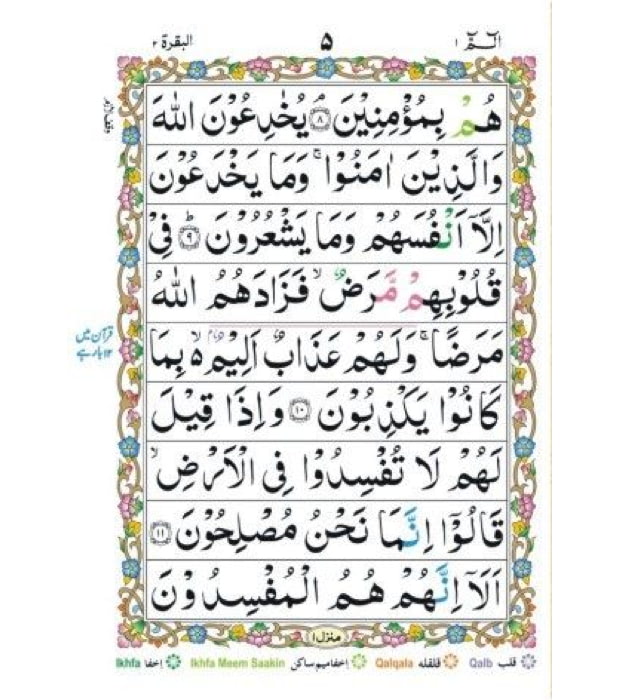 الٓمّٓ ۱ ۵ البقرة ۲
هُمْ بِمُؤْمِنِيْنَ ۝۸ يُخٰدِعُوْنَ اللّٰهَ
وَالَّذِيْنَ اٰمَنُوْا ۚ وَمَا يَخْدَعُوْنَ
اِلَّاۤ اَنْفُسَهُمْ وَمَا يَشْعُرُوْنَ ۝۹ؕ فِيْ
قُلُوْبِهِمْ مَّرَضٌ ۙ فَزَادَهُمُ اللّٰهُ
مَرَضًا ۚ وَلَهُمْ عَذَابٌ اَلِيْمٌۢ ۙ۬ بِمَا
كَانُوْا يَكْذِبُوْنَ ۝۱۰ وَاِذَا قِيْلَ
لَهُمْ لَا تُفْسِدُوْا فِى الْاَرْضِ ۙ
قَالُوْۤا اِنَّمَا نَحْنُ مُصْلِحُوْنَ ۝۱۱
اَلَاۤ اِنَّهُمْ هُمُ الْمُفْسِدُوْنَ
قرآن میں
۱۲ بار ہے
منزل ۱
قلب Qalb قلقلہ Qalqala اخفا میم ساکن Ikhfa Meem Saakin اخفا Ikhfa